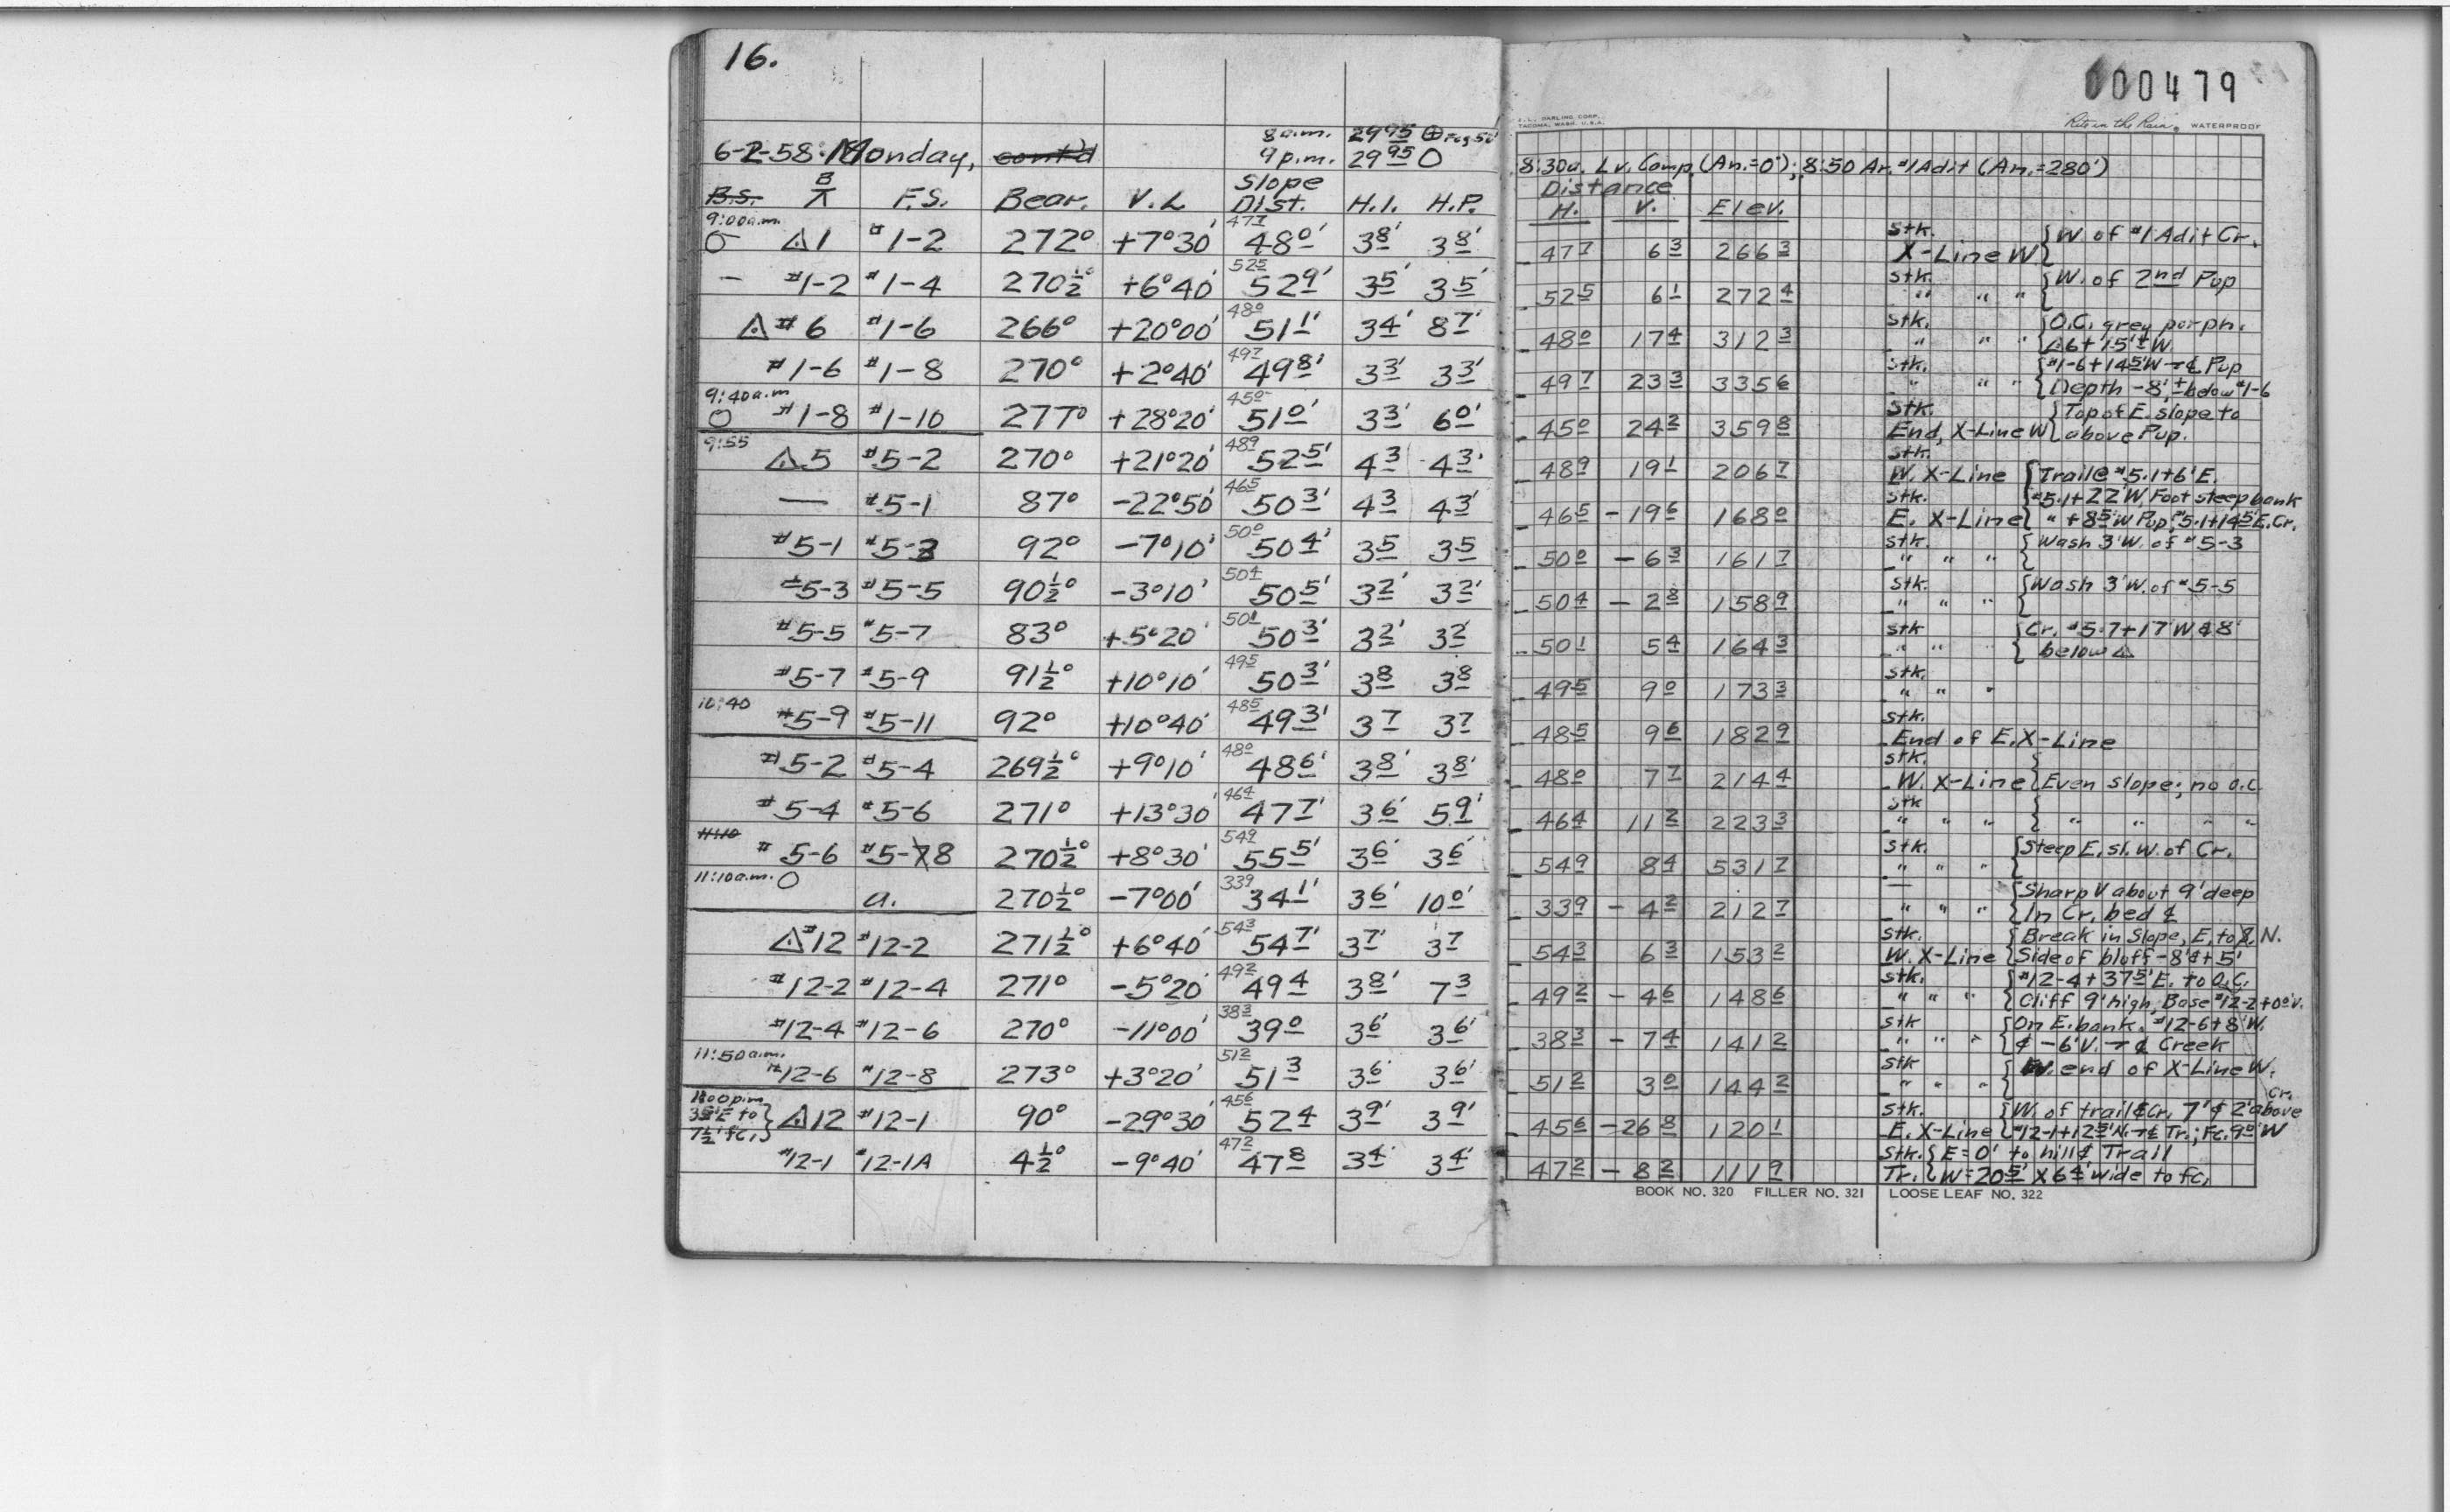 16.
8 a.m. 29 95 ⊕ Fog 50'
6-2-58: Monday, cont'd 9 p.m. 29 95 O
B.S. B/⊼ F.S. Bear. V.∠ Slope Dist. H.I. H.P.
9:00 a.m. 47 7
O △1 #1-2 272° +7°30' 48 0' 3 8' 3 8'
52 5
— #1-2 #1-4 270½° +6°40' 52 9' 3 5' 3 5'
48 0
△#6 #1-6 266° +20°00' 51 1' 3 4' 8 7'
49 7
#1-6 #1-8 270° +2°40' 49 8' 3 3' 3 3'
9:40 a.m. 45 0
O #1-8 #1-10 277° +28°20' 51 0' 3 3' 6 0'
9:55 48 9
△5 #5-2 270° +21°20' 52 5' 4 3 4 3'
46 5
— #5-1 87° -22°50' 50 3' 4 3 4 3'
50 0
#5-1 #5-3 92° -7°10' 50 4' 3 5 3 5
50 4
#5-3 #5-5 90½° -3°10' 50 5' 3 2' 3 2'
50 1
#5-5 #5-7 83° +5°20' 50 3' 3 2' 3 2'
49 5
#5-7 #5-9 91½° +10°10' 50 3' 3 8 3 8
10:40 48 5
#5-9 #5-11 92° +10°40' 49 3' 3 7 3 7
48 0
#5-2 #5-4 269½° +9°10' 48 6' 3 8' 3 8'
46 4
#5-4 #5-6 271° +13°30' 47 7' 3 6' 5 9'
54 9
#5-6 #5-8 270½° +8°30' 55 5' 3 6' 3 6'
11:10 a.m. O 33 9
a. 270½° -7°00' 34 1' 3 6' 10 0'
54 3
△#12 #12-2 271½° +6°40' 54 7' 3 7' 3 7
49 2
#12-2 #12-4 271° -5°20' 49 4 3 8' 7 3
38 3
#12-4 #12-6 270° -11°00' 39 0 3 6' 3 6'
11:50 a.m. 51 2
#12-6 #12-8 273° +3°20' 51 3 3 6' 3 6'
1:00 p.m. 45 6
E to △12 #12-1 90° -29°30' 52 4 3 9' 3 9'
7½' fc.
47 2
#12-1 #12-1A 4½° -9°40' 47 8 3 4' 3 4'
000479
J. L. DARLING CORP.
TACOMA, WASH. U.S.A.
Rite in the Rain WATERPROOF
8:30a. Lv. Camp (An.=0'); 8:50 Ar. #1 Adit (An.=280')
Distance
H. V. Elev.
47 7 6 3 266 3 Stk. X-Line W { W. of #1 Adit Cr.
52 5 6 1 272 4 Stk. " " " { W. of 2nd Pup
48 0 17 4 312 3 Stk. " " " { O.C. grey porph.
△6+15'± W
49 7 23 3 335 6 Stk. " " " { #1-6+14 5' W → ℄ Pup
Depth -8' ± below #1-6
45 0 24 2 359 8 Stk. { Top of E. slope to
End, X-Line W above Pup.
48 9 19 1 206 7 Stk. W. X-Line { Trail @ #5-1+6' E.
46 5 -19 6 168 0 Stk. { #5-1+22' W. Foot steep bank
E. X-Line " +8 5' W Pup; #5-1+14 5' E. Cr.
50 0 -6 3 161 7 Stk. " " " { Wash 3' W. of #5-3
50 4 -2 8 158 9 Stk. " " " { Wash 3' W. of #5-5
50 1 5 4 164 3 Stk " " " { Cr. #5-7+17' W & 8'
below △
49 5 9 0 173 3 Stk. " " "
48 5 9 6 182 9 Stk. End of E. X-Line
48 0 7 7 214 4 Stk. W. X-Line { Even slope; no o.c.
46 4 11 2 223 3 Stk " " " { " " " "
54 9 8 4 531 7 Stk. " " " { Steep E. sl. W. of Cr.
33 9 -4 2 212 7 — " " " { Sharp V about 9' deep
In Cr. bed ℄
54 3 6 3 153 2 Stk. { Break in Slope, E. to N.
W. X-Line Side of bluff -8' & +5'
49 2 -4 6 148 6 Stk. { #12-4+37 5' E. to O.C.
" " " Cliff 9' high, Base #12-2+0 0' V.
38 3 -7 4 141 2 Stk { On E. bank. #12-6+8' W.
" " " ℄ -6' V. → ℄ Creek
51 2 3 0 144 2 Stk " " " { W. end of X-Line W.
Cr.
45 6 -26 8 120 1 Stk. { W. of trail & Cr. 7' & 2' above
E. X-Line #12-1+12 5' N. → ℄ Tr.; Fc. 9 0' W
47 2 -8 2 111 9 Stk. { E=0' to hill & Trail
Tr. W=20 5' X 6 4' wide to fc.
BOOK NO. 320 FILLER NO. 321 LOOSE LEAF NO. 322